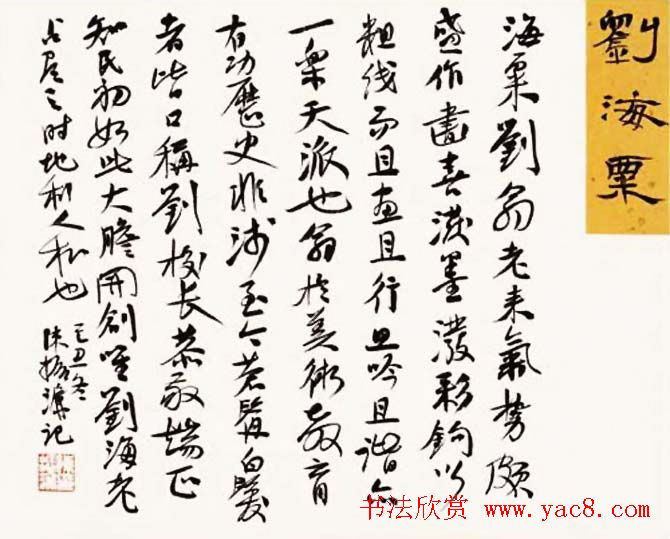 劉海粟
海粟劉翁老来氣势颇
盛作畫喜潑墨潑彩鉤以
粗线而且画且行且吟且谐亦
一樂天派也翁於美術教育
有功歷史非浅至今苍髯白髮
者皆口稱劉校长恭敬端正
知民初如此大膽開創唯劉海老
占尽天时地利人和也
己丑冬
陈振濂记
书法欣赏 www.yac8.com